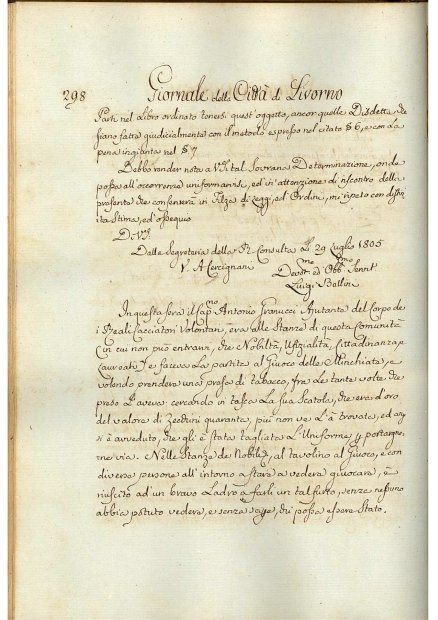 298 Giornale della Città di Livorno
Parti nel Libro ordinato tenersi quest'oggetto, ancor quelle Disdette, che
siano fatte giudicialmente con il metodo espresso nel citato § 6, e con La
pena ingiunta nel § 7
Debbo render nota a V.S. tal Sovrana Determinazione, onde
possa all'occorrenze uniformarvisi, ed in attenzione di riscontro della
presente che conserverà in Filza di Leggi, ed Ordini, mi ripeto con distin
ta stima, ed ossequio
D. V.S.
Dalla Segreteria della R. Consulta Li 29 Luglio 1805
V. A Cercignani Devot.mo ed Obb.mo Servit.
Luigi Ballini
In questa sera il Cap.no Antonio Granucci Ajutante del Corpo de
i Reali Cacciatori Volontari, era alle Stanze di questa Comunità
(in cui non può entrarvi, che Nobiltà, Ufizialità, Cittadinanza, e
Laureati) e faceva La partita al Giuoco delle Minchiate, e
volendo prendere una presa di tabacco, fra Le tante volte che
preso L'aveva cercando in tasca La sua Scatola, che era d'oro
del valore di Zecchini quaranta, più non ve L'à trovata, ed anzi
si è avveduto, che gli è stata tagliata L'Uniforme p portargne,
ne via. Nelle Stanze de Nobili, al tavolino al Giuoco, e con
diverse persone all'intorno a stare a vedere giuocare, è
riuscito ad un bravo Ladro a farli un tal furto, senza nessuno
abbia potuto vedere, e senza sapere, chi possa essere Stato.